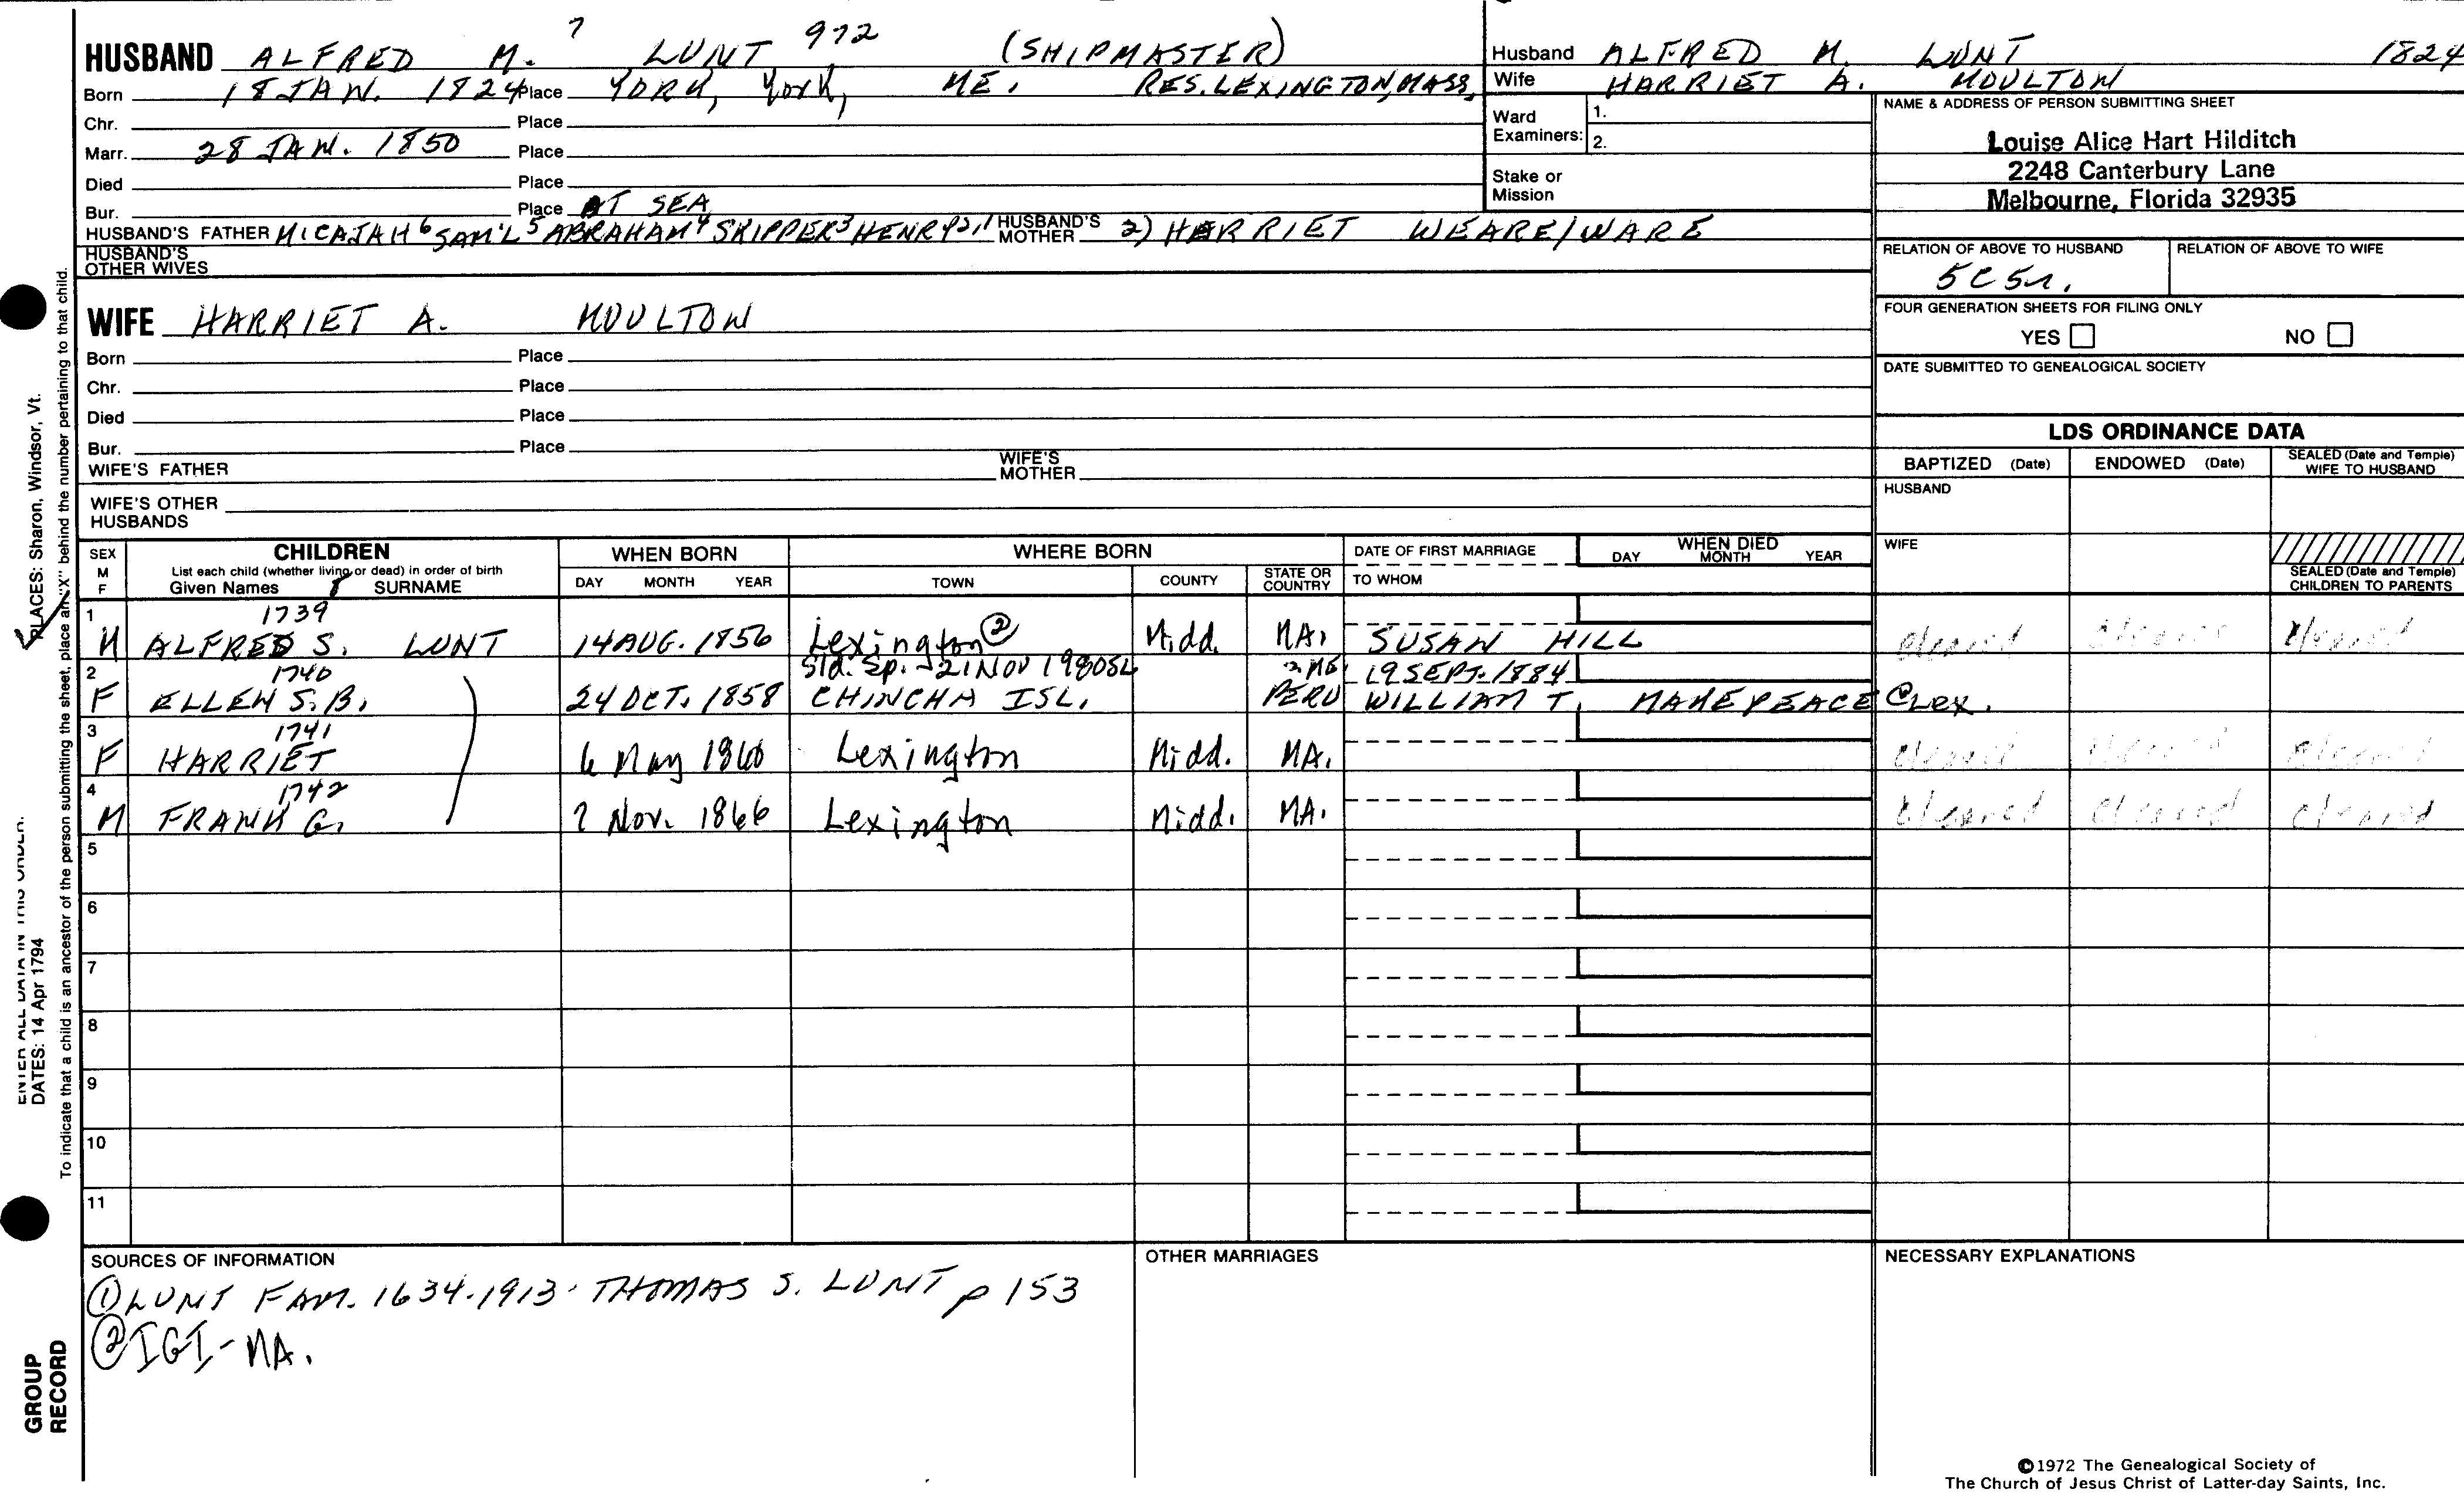 HUSBAND ALFRED M. 7 LUNT 972 (SHIPMASTER)
Born 18 JAN. 1824 Place YORK, York, ME. RES. LEXINGTON, MASS.
Chr. Place
Marr. 28 JAN. 1850 Place
Died Place
Bur. Place AT SEA
HUSBAND'S FATHER MICAJAH 6 SAM'L 5 ABRAHAM 4 SKIPPER 3 HENRY 2,1 HUSBAND'S MOTHER 2) HARRIET WEARE/WARE
HUSBAND'S OTHER WIVES
WIFE HARRIET A. MOULTON
Born Place
Chr. Place
Died Place
Bur. Place
WIFE'S FATHER WIFE'S MOTHER
WIFE'S OTHER HUSBANDS
Husband ALFRED M. LUNT 1824
Wife HARRIET A. MOULTON
Ward Examiners: 1.
2.
Stake or Mission
NAME & ADDRESS OF PERSON SUBMITTING SHEET
Louise Alice Hart Hilditch
2248 Canterbury Lane
Melbourne, Florida 32935
RELATION OF ABOVE TO HUSBAND RELATION OF ABOVE TO WIFE
5C5r.
FOUR GENERATION SHEETS FOR FILING ONLY
YES NO
DATE SUBMITTED TO GENEALOGICAL SOCIETY
LDS ORDINANCE DATA
BAPTIZED (Date) ENDOWED (Date) SEALED (Date and Temple) WIFE TO HUSBAND
HUSBAND
WIFE
SEALED (Date and Temple) CHILDREN TO PARENTS
SEX M F CHILDREN WHEN BORN WHERE BORN DATE OF FIRST MARRIAGE WHEN DIED
List each child (whether living or dead) in order of birth DAY MONTH YEAR
Given Names SURNAME DAY MONTH YEAR TOWN COUNTY STATE OR COUNTRY TO WHOM
1 1739
M ALFRED S. LUNT 14 AUG. 1856 Lexington ② Midd. MA. SUSAN HILL Cleared Cleared Cleared
2 1740 Sld. Sp. - 21 NOV 1980 SL 19 SEPT. 1884
F ELLEN S. B. 24 OCT. 1858 CHINCHA ISL. PERU WILLIAM T. MAKEPEACE @ Lex.
3 1741
F HARRIET 6 May 1860 Lexington Midd. MA. Cleared Cleared Cleared
4 1742
M FRANK G. 7 Nov. 1866 Lexington Midd. MA. Cleared Cleared Cleared
5
6
7
8
9
10
11
SOURCES OF INFORMATION
① LUNT FAM. 1634-1913 - THOMAS S. LUNT p 153
② IGI - MA.
OTHER MARRIAGES
NECESSARY EXPLANATIONS
©1972 The Genealogical Society of
The Church of Jesus Christ of Latter-day Saints, Inc.
PLACES: Sharon, Windsor, Vt.
To indicate that a child is an ancestor of the person submitting the sheet, place an "X" behind the number pertaining to that child.
ENTER ALL DATA IN THIS ORDER:
DATES: 14 Apr 1794
GROUP
RECORD